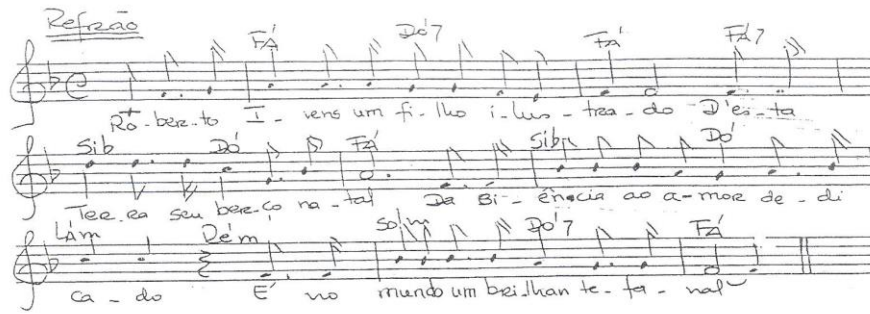 Refrão
FÁ Dó7 FÁ FÁ7
Ro-ber-to I-vens um fi-lho i-lus-tra-do D'es-ta
Sib Dó FÁ Sib Dó
Ter-ra seu ber-ço na-tal Da Bi-ência ao a-mor de-di
Lám Rém Solm Dó7 FÁ
ca-do É no mundo um bri-lhan-te fa-nal